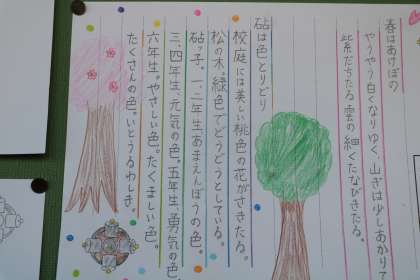 春はあけぼの
やうやう白くなりゆく、山ぎは少しあかりて
紫だちたる雲の細くたなびきたる。
砧は色とりどり
校庭には美しい桃色の花がさきたる。
松の木、緑色でどうどうとしている。
砧っ子。一、二年生あまえんぼうの色。
三、四年生、元気の色。五年生、勇気の色
六年生。やさしい色。たくましい色。
たくさんの色。いとうるわしき。